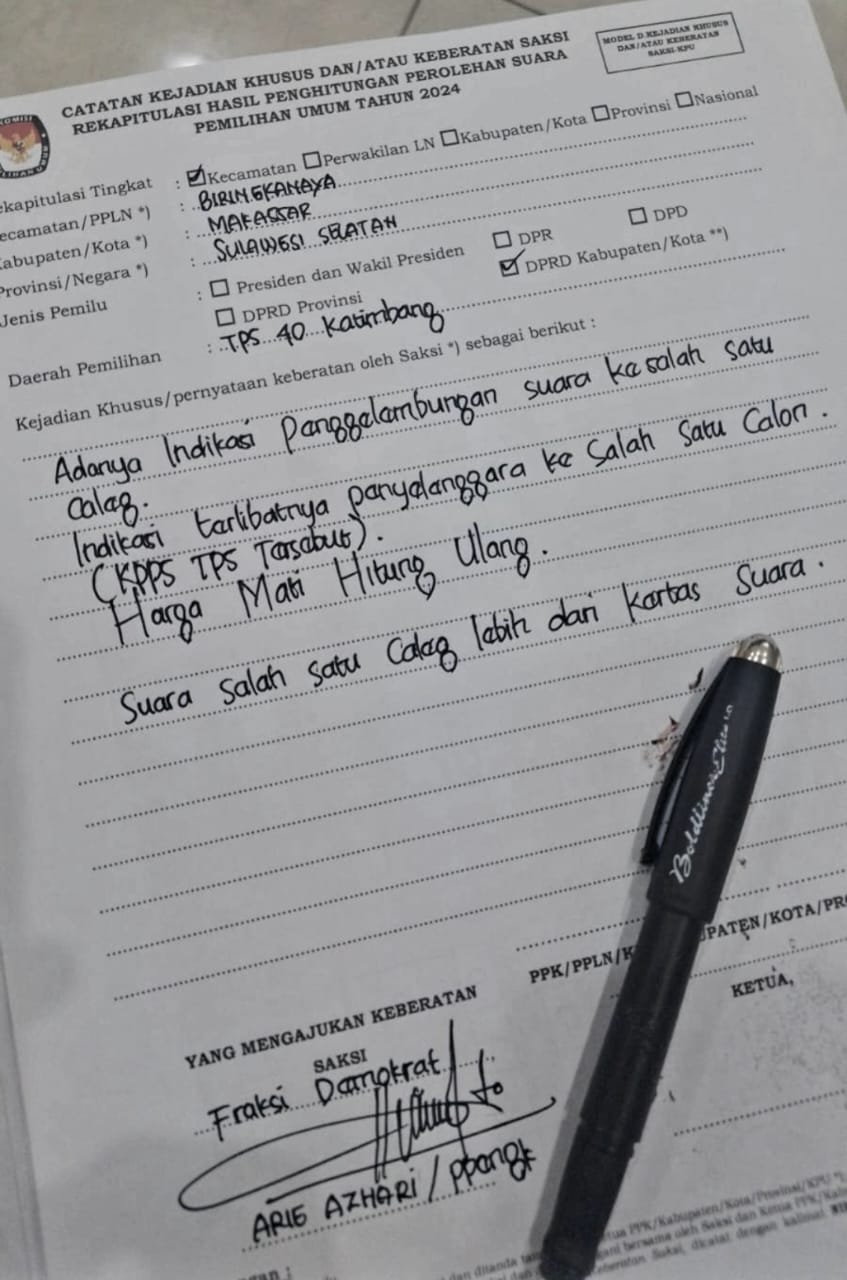 CATATAN KEJADIAN KHUSUS DAN/ATAU KEBERATAN SAKSI
REKAPITULASI HASIL PENGHITUNGAN PEROLEHAN SUARA
PEMILIHAN UMUM TAHUN 2024
MODEL D.KEJADIAN KHUSUS
DAN/ATAU KEBERATAN
SAKSI-KPU
ekapitulasi Tingkat : Kecamatan Perwakilan LN Kabupaten/Kota Provinsi Nasional
ecamatan/PPLN *) : BIRINGKANAYA
abupaten/Kota *) : MAKASSAR
Provinsi/Negara *) : SULAWESI SELATAN
Jenis Pemilu : Presiden dan Wakil Presiden DPR DPD
DPRD Provinsi DPRD Kabupaten/Kota **)
Daerah Pemilihan : TPS 40 Katimbang
Kejadian Khusus/pernyataan keberatan oleh Saksi *) sebagai berikut :
Adanya Indikasi Panggelambungan suara ke salah satu
Caleg.
Indikasi terlibatnya panyelanggara ke Salah Satu Calon.
(KPPS TPS Tersebut).
Harga Mati Hitung Ulang.
Suara Salah satu Caleg lebih dari Kertas Suara.
PPK/PPLN/K PATEN/KOTA/PRO
KETUA,
YANG MENGAJUKAN KEBERATAN
SAKSI
Fraksi Demokrat
ARIE AZHARI /